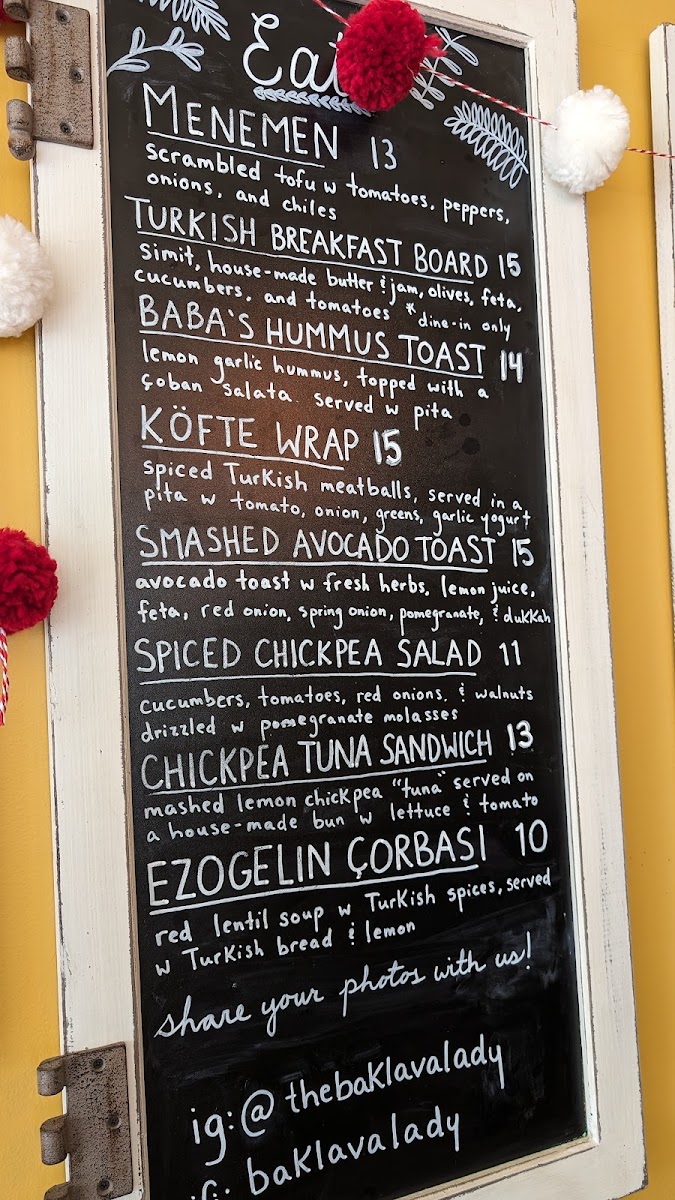 Eat
MENEMEN 13
scrambled tofu w tomatoes, peppers,
onions, and chiles
TURKISH BREAKFAST BOARD 15
simit, house-made butter & jam, olives, feta,
cucumbers, and tomatoes *dine-in only
BABA'S HUMMUS TOAST 14
lemon garlic hummus, topped with a
çoban salata. served w pita
KÖFTE WRAP 15
spiced Turkish meatballs, served in a
pita w tomato, onion, greens, garlic yogurt
SMASHED AVOCADO TOAST 15
avocado toast w fresh herbs, lemon juice,
feta, red onion, spring onion, pomegranate, & dukkah
SPICED CHICKPEA SALAD 11
cucumbers, tomatoes, red onions, & walnuts
drizzled w pomegranate molasses
CHICKPEA TUNA SANDWICH 13
mashed lemon chickpea "tuna" served on
a house-made bun w lettuce & tomato
EZOGELIN ÇORBASI 10
red lentil soup w Turkish spices, served
w Turkish bread & lemon
share your photos with us!
ig:@thebaklavalady
baklavalady